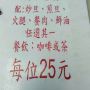 配:炒旦、煎旦、
火腿、餐肉、鮮油
任選其一
餐飲:咖啡或茶
每位25元